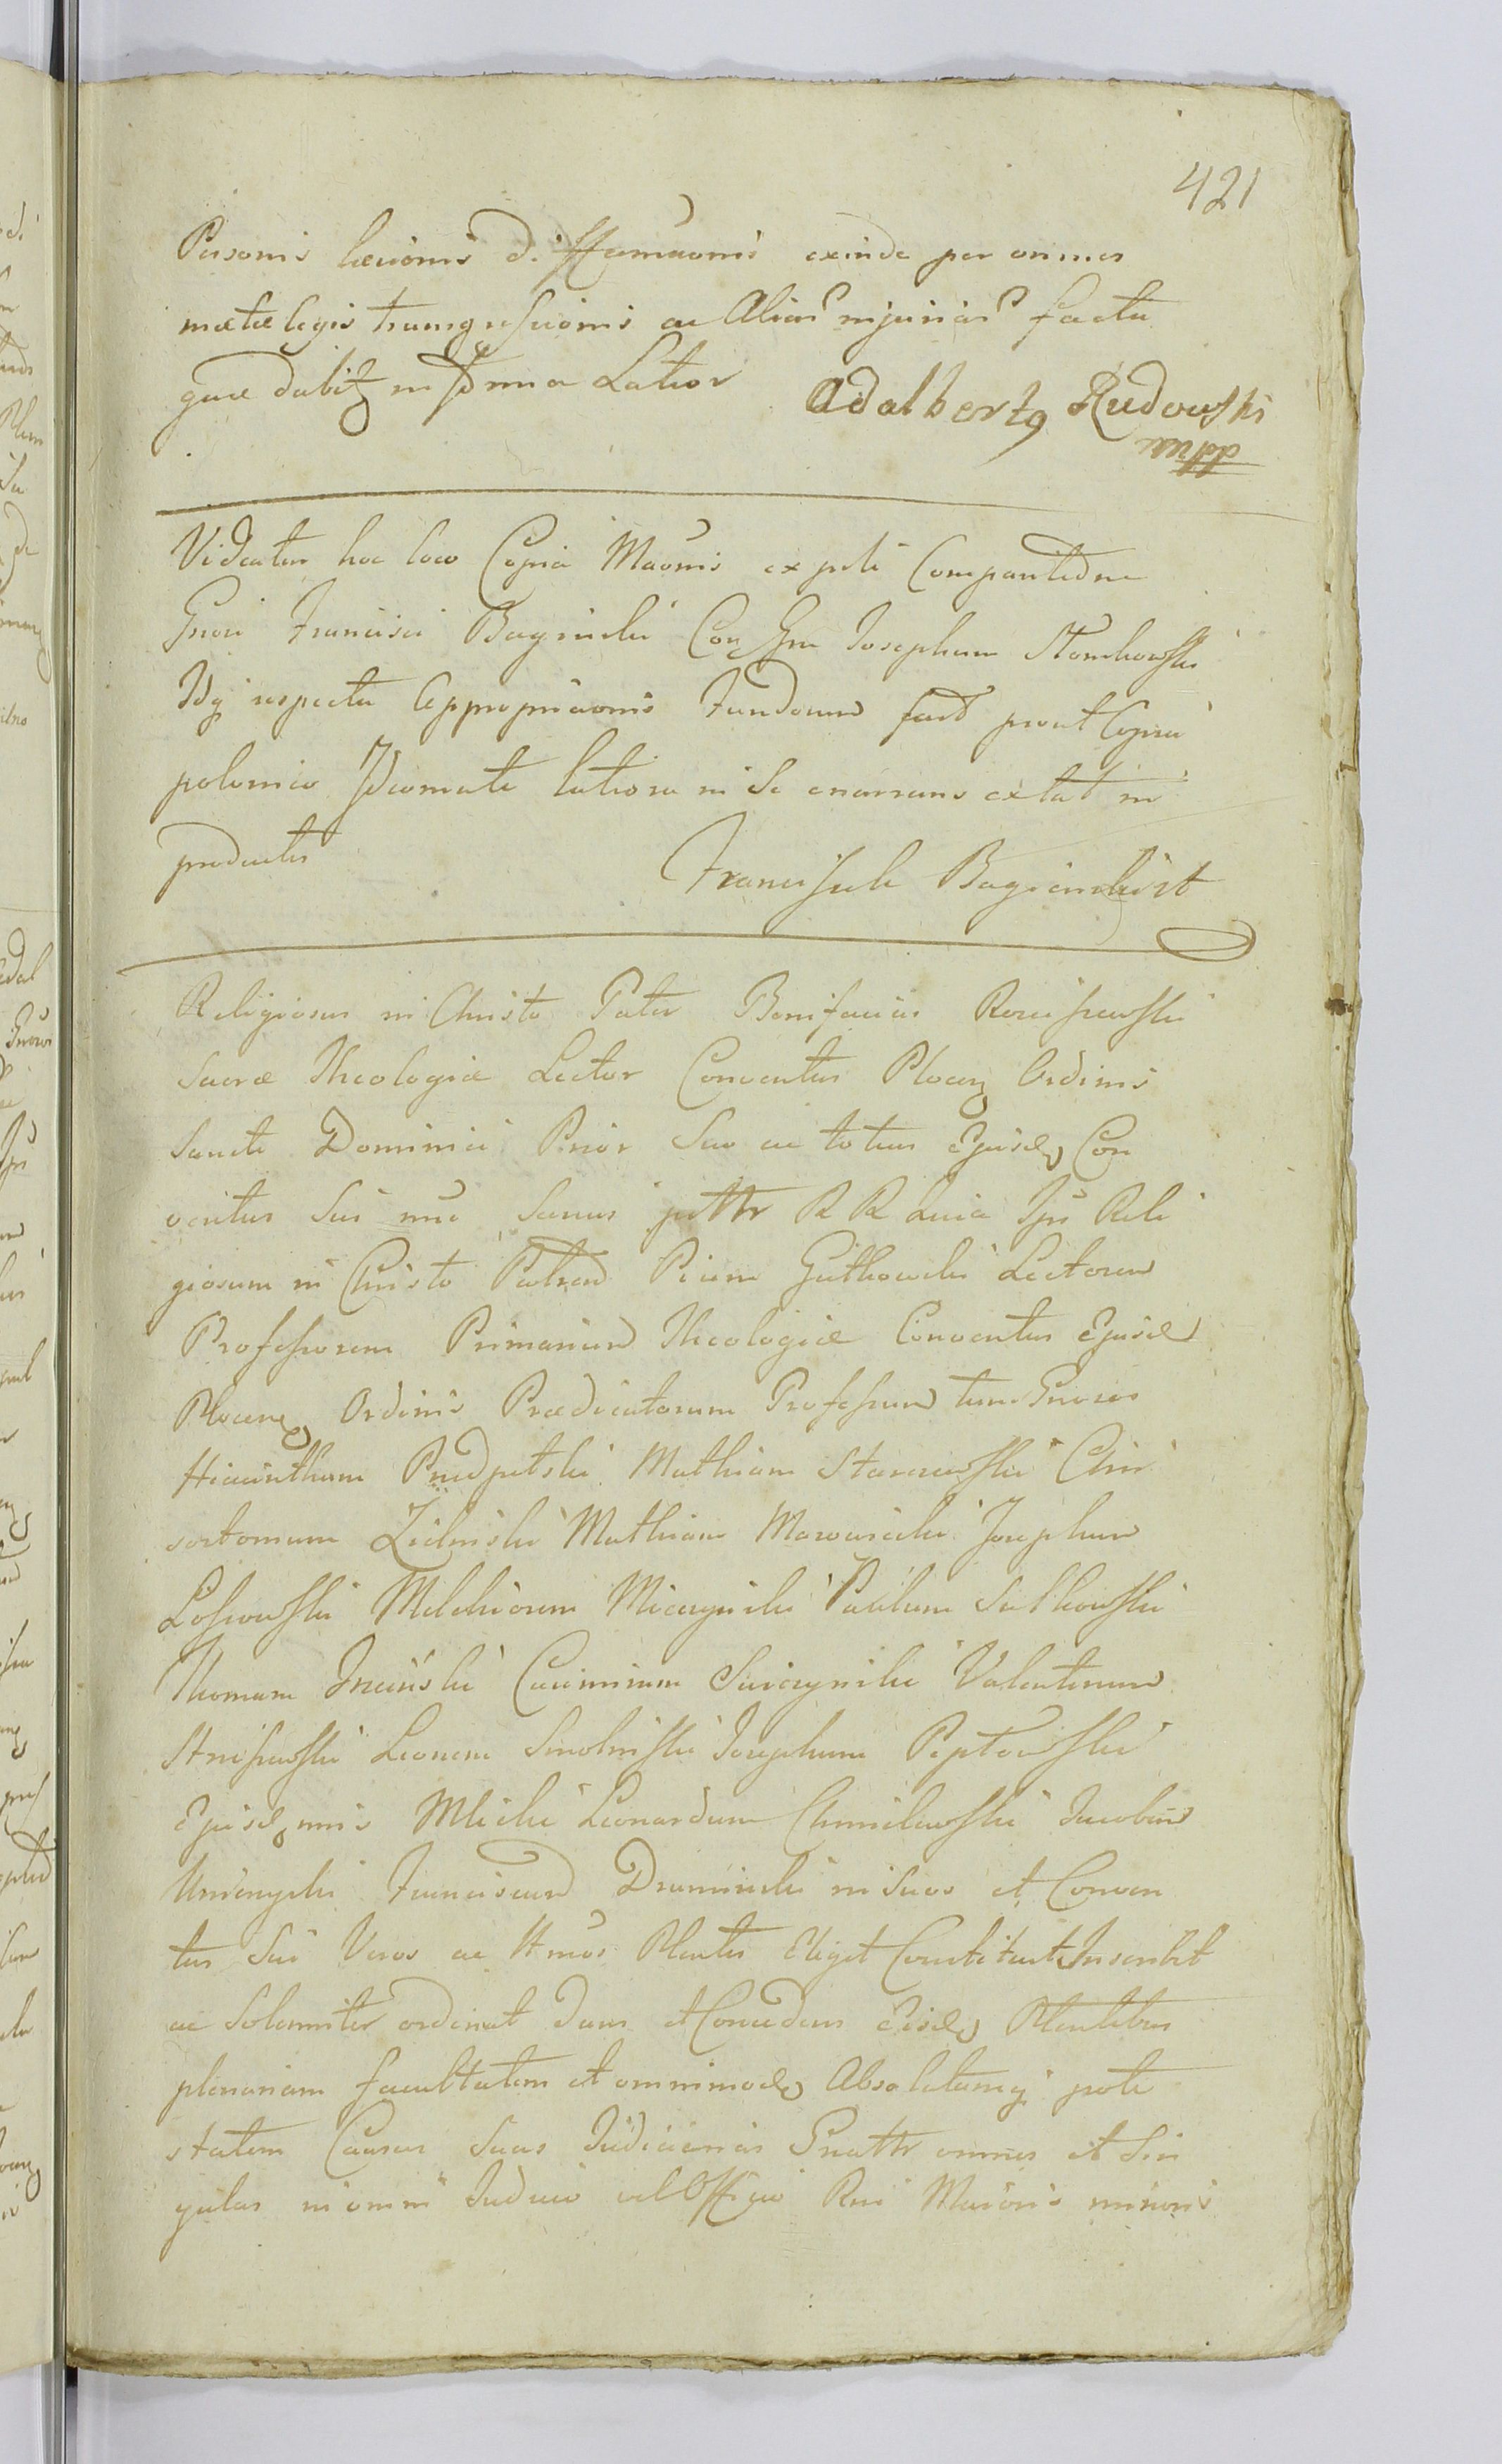 421
Personis læsionis diffamaonis exinde per omnes
metæ legis transgressionis ac Alias injurias facta
quæ dabitz in Termino Latior Adalbertq Rudowski
Videatur hoc loco Copia Maonis ex parte Comparitidne
Gnosi Francisci Bagieński Con Gm Josephum Słomkowski
Idq respectu Appropriaonis Fundorum fact prout Copia
polonico Idiomate latiora in se enarrans extat in
productis
Franciszek Bagienskist
Religiosus in Christo Pater Bonifacius Rościszewski
Sacræ Theologiæ Lector Conventus Plocen Ordinis
Sancti Dominici Prior Suo ac totius Ejusd Con
ventus Sui nne Sanus ptttr R R Lucia Ipse Reli
giosum in Christo Patrem Pium Gutkowski Lectorem
Professorem Primarium Theologiæ Conventus Ejusd
Plocens Ordinis Prædicatorum Professum tum Gnosos
Hiacinthum Przedpełski Mathiam Starzewski Chri
sostomum Zieliński Mathiam Morawski Josephum
Lossowski Melchiorem Mieczyński Paulum Sutkowski
Thomam Trzciński Casimirum Swierzyński Valentinum
Strussewski Leonem Smoliński Josephum Peptowski
Ejusd nnis Mlicki Leonardum Chmielewski Jacobum
Unierzyski Franciscum Drwiński in Suos et Conven
tus Sui Veros ac ttmos Plentes Eligit Constituit Inscribit
ac Solenniter ordinat dans et Concedens Eisd Plentibus
plenariam facultatem et omnimod Absolutamq pote
statem Causas Suas Judiciarias Gnattr omnes et Sin
gulas in omni Judicio vel Officio Rni Maioris minoris